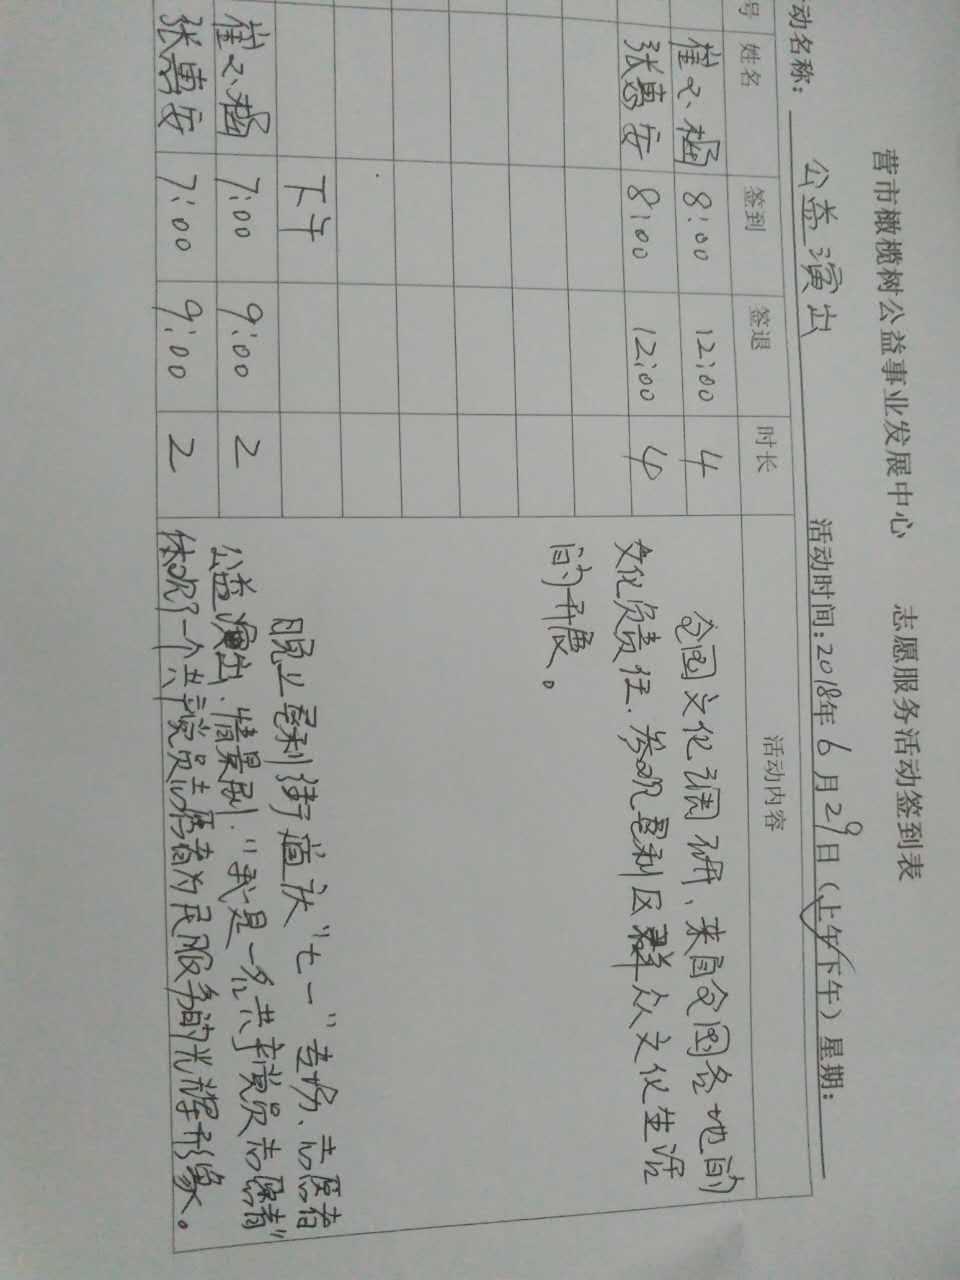 营市橄榄树公益事业发展中心 志愿服务活动签到表
动名称: 公益演出 活动时间:2018年6月29日(上午/下午)星期:
号 姓名 签到 签退 时长 活动内容
崔文涵 8:00 12:00 4 全国文化调研、来自全国各地的
张惠安 8:00 12:00 4 文化负责任.参观垦利区群众文化生活
的开展。
下午 晚上垦利街道办"七一"专场、志愿者
崔文涵 7:00 9:00 2 公益演出.情景剧."我是一名共产党员志愿者"
张惠安 7:00 9:00 2 体现了一个共产党员志愿者为民服务的光辉形象。